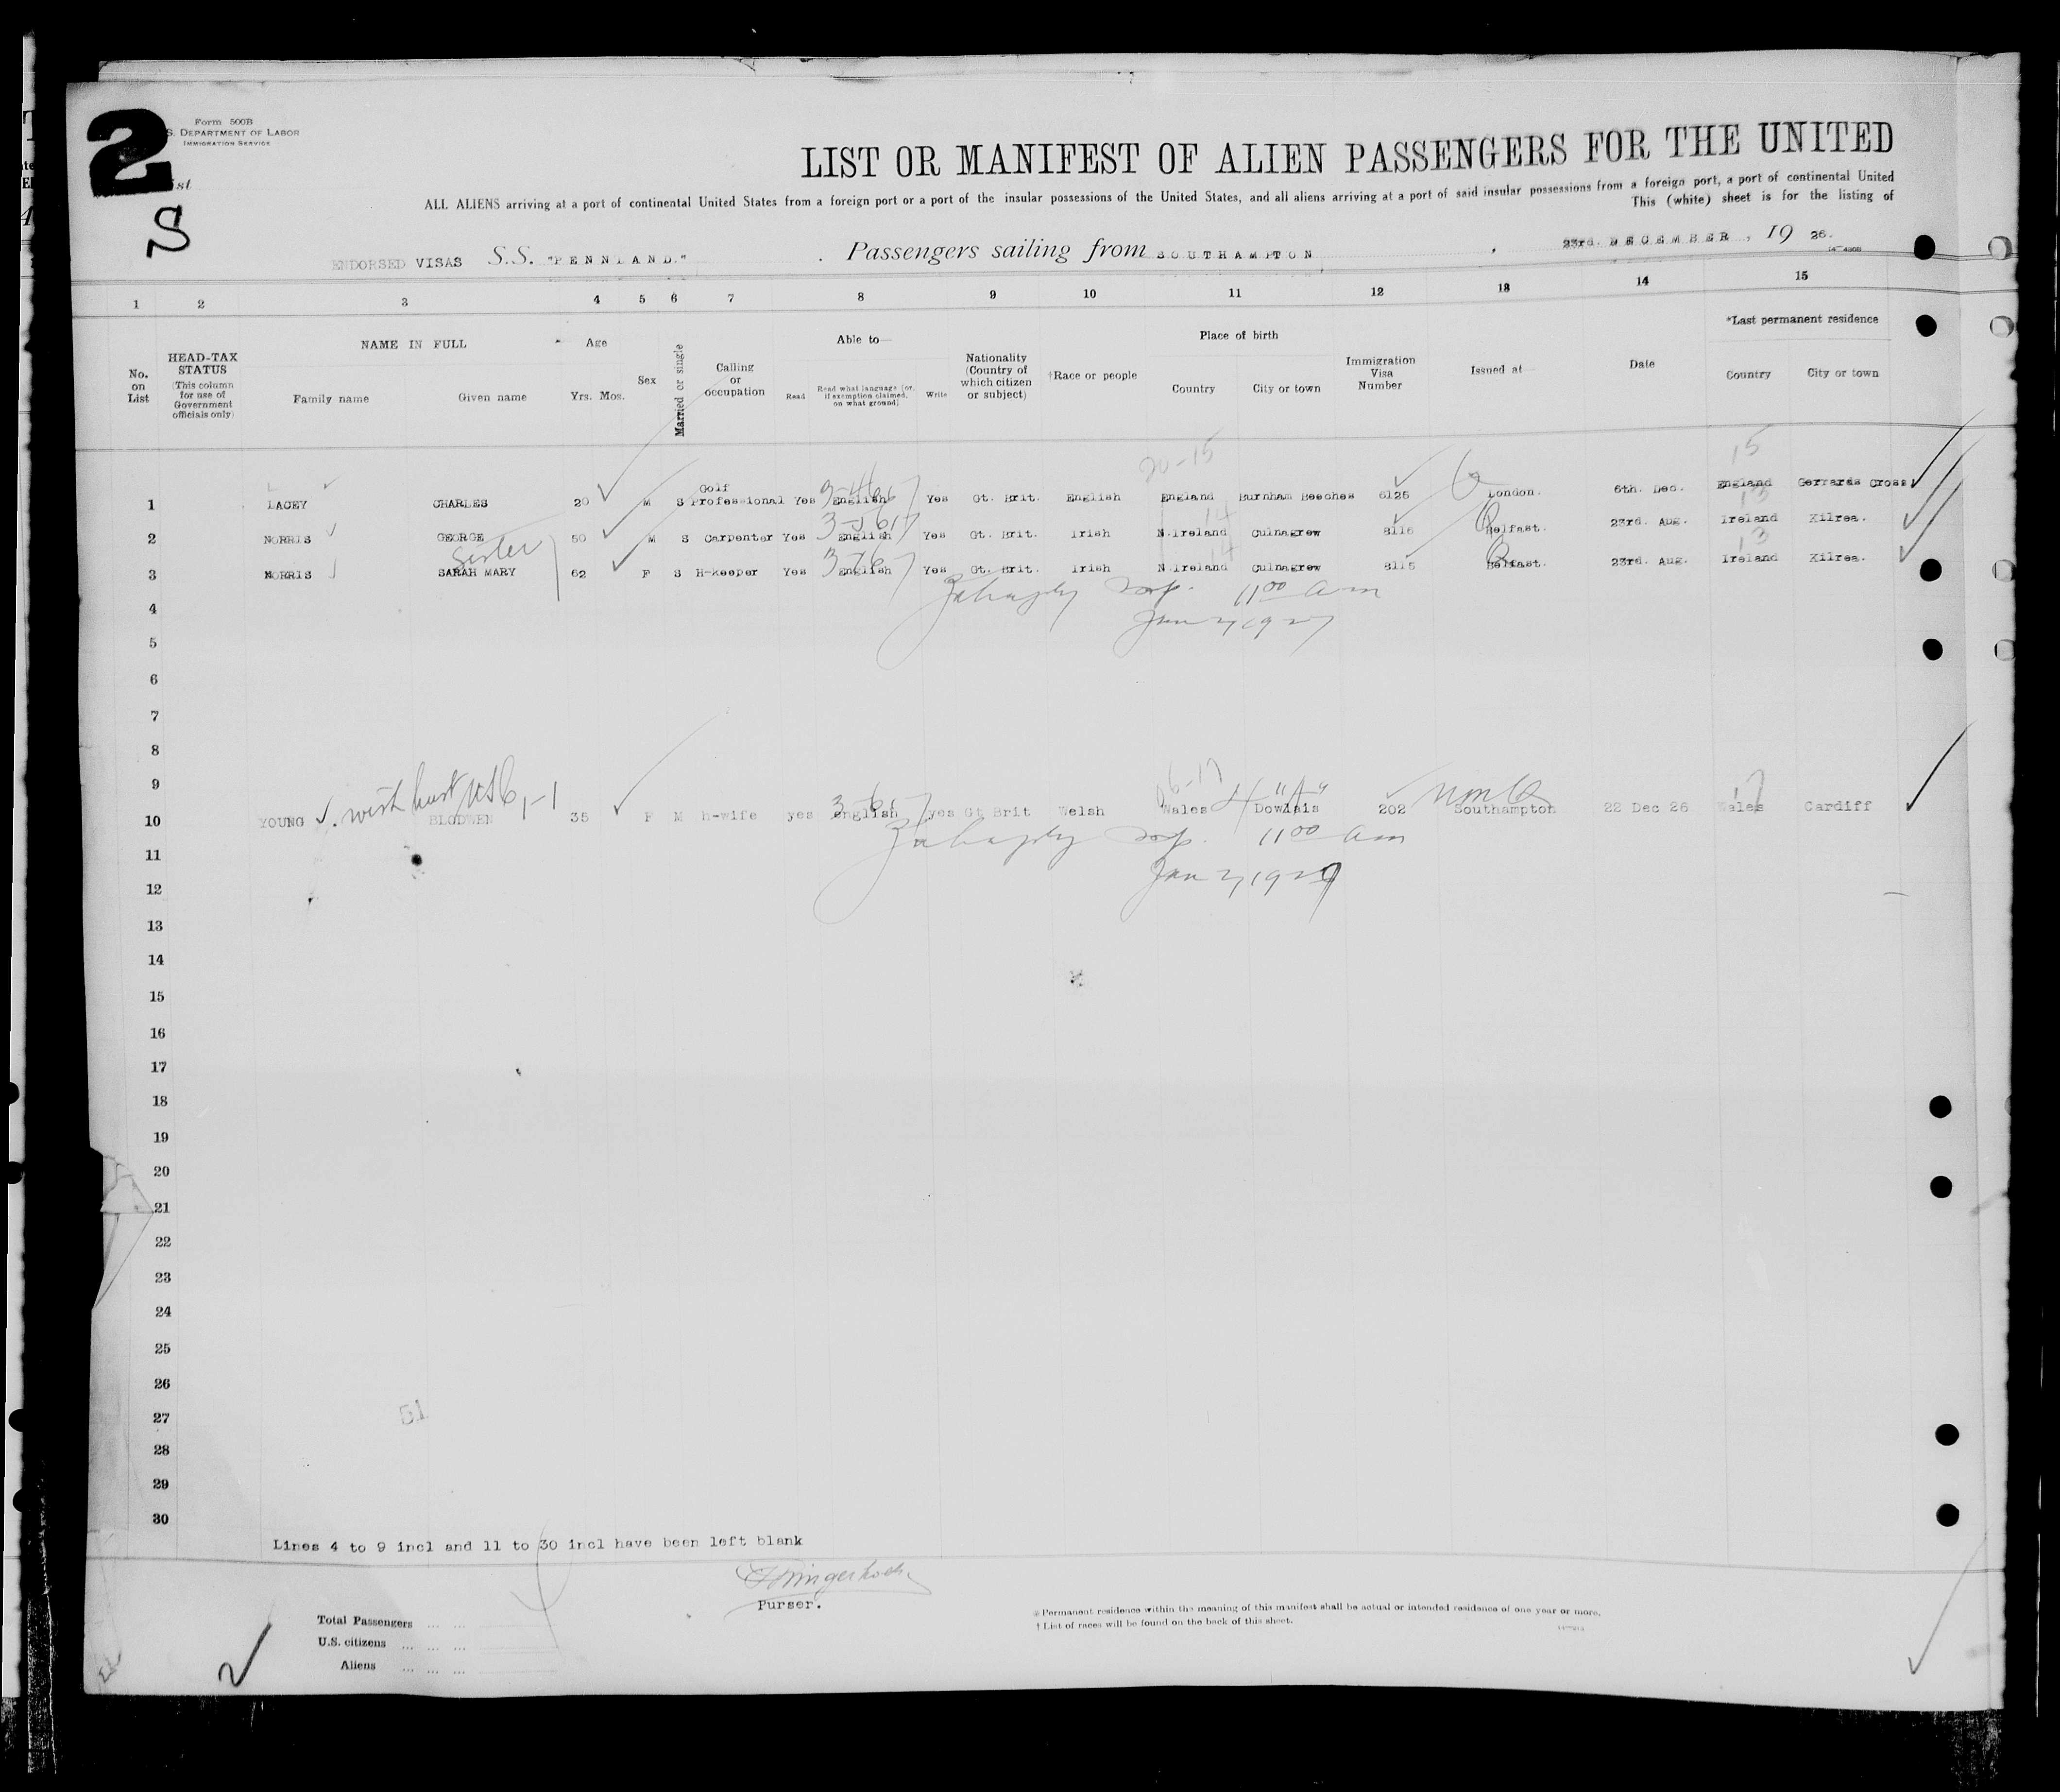 2
Form 500B
S. DEPARTMENT OF LABOR
IMMIGRATION SERVICE
ist
S
LIST OR MANIFEST OF ALIEN PASSENGERS FOR THE UNITED
ALL ALIENS arriving at a port of continental United States from a foreign port or a port of the insular possessions of the United States, and all aliens arriving at a port of said insular possessions from a foreign port, a port of continental United
This (white) sheet is for the listing of
ENDORSED VISAS S.S. "PENNLAND." Passengers sailing from SOUTHAMPTON, 23rd. DECEMBER, 1926.
1 2 3 4 5 6 7 8 9 10 11 12 13 14 15
No. on List
HEAD-TAX STATUS (This column for use of Government officials only)
NAME IN FULL
Family name Given name
Age
Yrs. Mos.
Sex
Married or single
Calling or occupation
Able to—
Read Read what language (or, if exemption claimed, on what ground) Write
Nationality (Country of which citizen or subject)
†Race or people
Place of birth
Country City or town
Immigration Visa Number
Issued at
Date
*Last permanent residence
Country City or town
20-15 15
1 LACEY CHARLES 20 M S Golf Professional Yes English Yes Gt. Brit. English England Burnham Beeches 6125 London. 6th. Dec. England Gerrards Cross
2 NORRIS GEORGE 50 M S Carpenter Yes English Yes Gt. Brit. Irish N.Ireland Culnagrew 8116 Belfast. 23rd. Aug. Ireland Kilrea.
Sister
3 NORRIS SARAH MARY 62 F S H-keeper Yes English Yes Gt. Brit. Irish N.Ireland Culnagrew 8115 Belfast. 23rd. Aug. Ireland Kilrea.
4 11 00 am
5 Jan 2, 1927
6
7
8
9
10 YOUNG BLODWEN 35 F M h-wife yes english yes Gt Brit Welsh Wales Dowlais 202 Southampton 22 Dec 26 Wales Cardiff
11 11 00 am
12 Jan 2, 1927
13
14
15
16
17
18
19
20
21
22
23
24
25
26
27 51
28
29
30
Lines 4 to 9 incl and 11 to 30 incl have been left blank
Purser.
Total Passengers ... ...
U.S. citizens ... ... ...
Aliens ... ... ...
* Permanent residence within the meaning of this manifest shall be actual or intended residence of one year or more.
† List of races will be found on the back of this sheet.